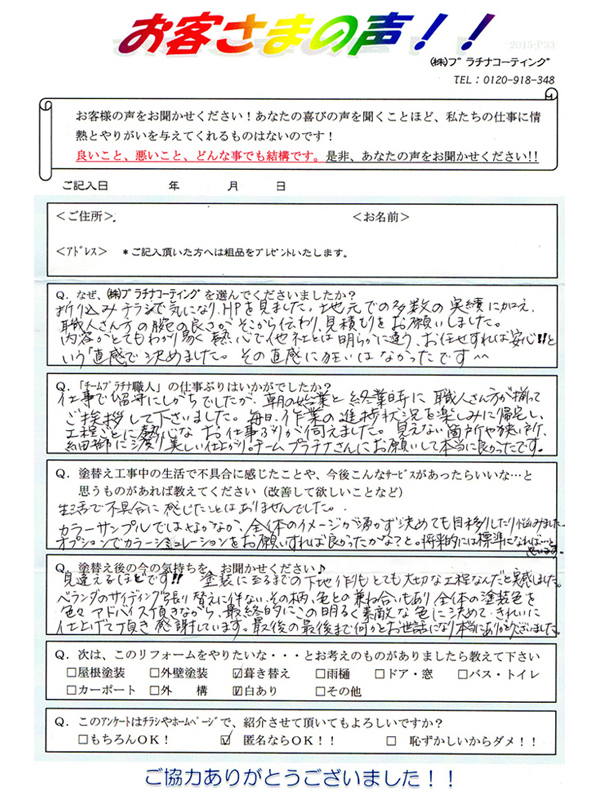 お客さまの声！！
2015.P33
㈱プラチナコーティング
TEL：0120-918-348
お客様の声をお聞かせください！あなたの喜びの声を聞くことほど、私たちの仕事に情
熱とやりがいを与えてくれるものはないのです！
良いこと、悪いこと、どんな事でも結構です。是非、あなたの声をお聞かせください!!
ご記入日　年　月　日
＜ご住所＞　＜お名前＞
＜アドレス＞ ＊ご記入頂いた方へは粗品をプレゼントいたします。
Q．なぜ、㈱プラチナコーティングを選んでくださいましたか？
折り込みチラシで気になり、HPを見ました。地元での多数の実績に加え、
職人さん方の腕の良さがそこから伝わり、見積もりをお願いしました。
内容がとてもわかり易く熱心で他社とは明らかに違う、お任せすれば安心!!と
いう「直感で決めました。その直感に狂いはなかったです^^
Q．「チームプラチナ職人」の仕事ぶりはいかがでしたか？
仕事で留守にしがちでしたが、朝の始業と終業時に職人さん方が揃って
ご挨拶して下さいました。毎日、作業の進捗状況を楽しみに帰宅し、
工程ごとに熱いなお仕事ぶりが伺えました。見えない箇所や狭い所、
細部に渡り美しい仕上がり。チームプラチナさんにお願いして本当に良かったです。
Q．塗替え工事中の生活で不具合に感じたことや、今後こんなサービスがあったらいいな…と
思うものがあれば教えてください（改善して欲しいことなど）
生活で不具合に感じたことはありませんでした。
カラーサンプルではなかなか、全体のイメージが湧かず決めても目移りしたり悩みました。
オプションでカラーシミュレーションをお願いすれば良かったかなぁと。将来的には標準になれば…と
思います。
Q．塗替え後の今の気持ちを、お聞かせください♪
見違えるほどです!!　塗装に至るまでの下地作りもとても大切な工程なんだと実感しました。
ベランダのサイディング張り替えに伴ない、その柄、色との兼ね合いもあり、全体の塗装色を
色々アドバイス頂きながら、最終的にこの明るく素敵な色に決めて、きれいに
仕上げて頂き感謝しています。最後の最後まで何かとお世話になり本当にありがとうございました。
Q．次は、このリフォームをやりたいな・・・とお考えのものがありましたら教えて下さい
□屋根塗装　□外壁塗装　☑葺き替え　□雨樋　□ドア・窓　□バス・トイレ
□カーポート　□外　構　☑白あり　□その他
Q．このアンケートはチラシやホームページで、紹介させて頂いてもよろしいですか？
□もちろんOK！　☑ 匿名ならOK！！　□ 恥ずかしいからダメ！！
ご協力ありがとうございました！！